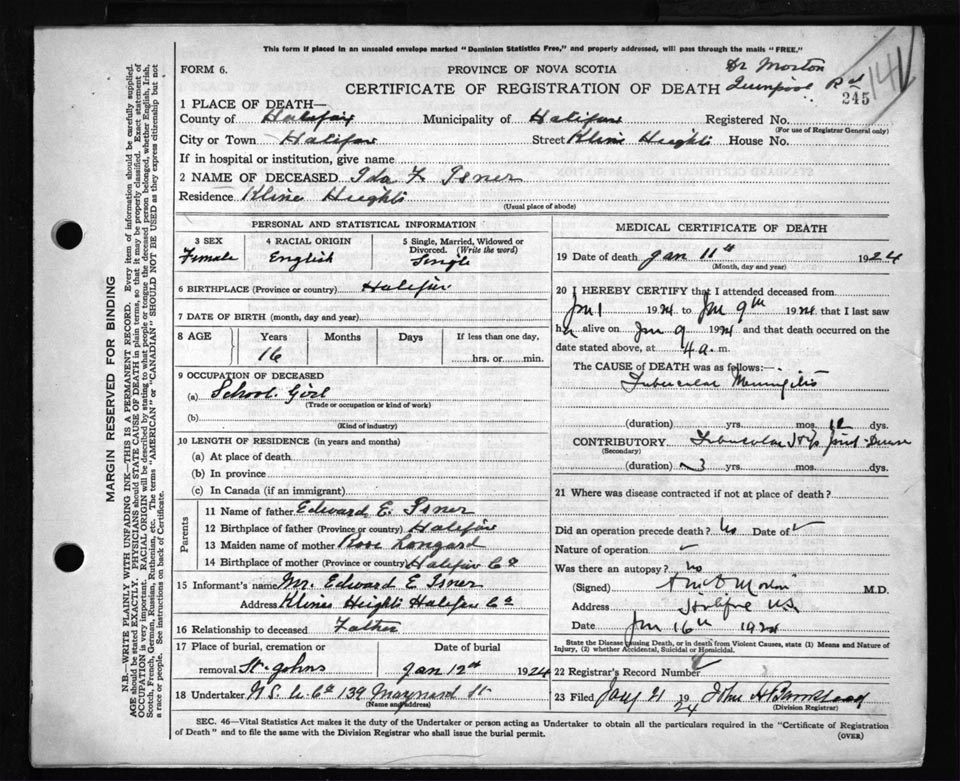 This form if placed in an unsealed envelope marked "Dominion Statistics Free," and properly addressed, will pass through the mails "FREE."
FORM 6.
PROVINCE OF NOVA SCOTIA
Dr Morton
Quinpool Rd
141
CERTIFICATE OF REGISTRATION OF DEATH
245
1 PLACE OF DEATH—
County of Halifax Municipality of Halifax Registered No.
(For use of Registrar General only)
City or Town Halifax Street Kline Heights House No.
If in hospital or institution, give name
2 NAME OF DECEASED Ida F. Isner
Residence Kline Heights
(Usual place of abode)
PERSONAL AND STATISTICAL INFORMATION
3 SEX
Female
4 RACIAL ORIGIN
English
5 Single, Married, Widowed or Divorced. (Write the word)
Single
6 BIRTHPLACE (Province or country) Halifax
7 DATE OF BIRTH (month, day and year)
8 AGE Years Months Days If less than one day,
16 hrs. or min.
9 OCCUPATION OF DECEASED
(a) School Girl
(Trade or occupation or kind of work)
(b)
(Kind of industry)
10 LENGTH OF RESIDENCE (in years and months)
(a) At place of death
(b) In province
(c) In Canada (if an immigrant)
Parents
11 Name of father Edward E. Isner
12 Birthplace of father (Province or country) Halifax
13 Maiden name of mother Rose Longard
14 Birthplace of mother (Province or country) Halifax Co
15 Informant's name Mr. Edward E Isner
Address Klines Heights Halifax Co
16 Relationship to deceased Father
17 Place of burial, cremation or removal St. Johns
Date of burial
Jan 12th 1924
18 Undertaker N.S. U. Co 139 Maynard St
(Name and address)
MEDICAL CERTIFICATE OF DEATH
19 Date of death Jan 11th 1924
(Month, day and year)
20 I HEREBY CERTIFY that I attended deceased from
Jan 1 1924 to Jan 9th 1924 that I last saw
her alive on Jan 9 1924 and that death occurred on
date stated above, at 4 a. m.
The CAUSE of DEATH was as follows:—
Tubercular Meningitis
(duration) yrs. mos. 12 dys.
CONTRIBUTORY Tubercular Hip joint Disease
(Secondary)
(duration) 3 yrs. mos. dys.
21 Where was disease contracted if not at place of death?
Did an operation precede death? No Date of
Nature of operation
Was there an autopsy? no
(Signed) Morton M.D.
Address Halifax N.S.
Date Jan 16th 1924
State the Disease causing Death, or in death from Violent Causes, state (1) Means and Nature of Injury, (2) whether Accidental, Suicidal or Homicidal.
22 Registrar's Record Number
23 Filed Jany 21 1924 John H Barnstead
(Division Registrar)
SEC. 46—Vital Statistics Act makes it the duty of the Undertaker or person acting as Undertaker to obtain all the particulars required in the "Certificate of Registration
of Death" and to file the same with the Division Registrar who shall issue the burial permit.
(OVER)
MARGIN RESERVED FOR BINDING
N.B.—WRITE PLAINLY WITH UNFADING INK—THIS IS A PERMANENT RECORD. Every item of information should be carefully supplied.
AGE should be stated EXACTLY. PHYSICIANS should STATE CAUSE OF DEATH in plain terms, so that it may be properly classified. Exact statement of
OCCUPATION is very important. RACIAL ORIGIN will be described by stating to what people or tongue the deceased person belonged, whether English, Irish,
Scotch, French, German, Russian, Ruthenian, etc. The terms "AMERICAN" or "CANADIAN" SHOULD NOT BE USED as they express citizenship but not
a race or people. See instructions on back of Certificate.